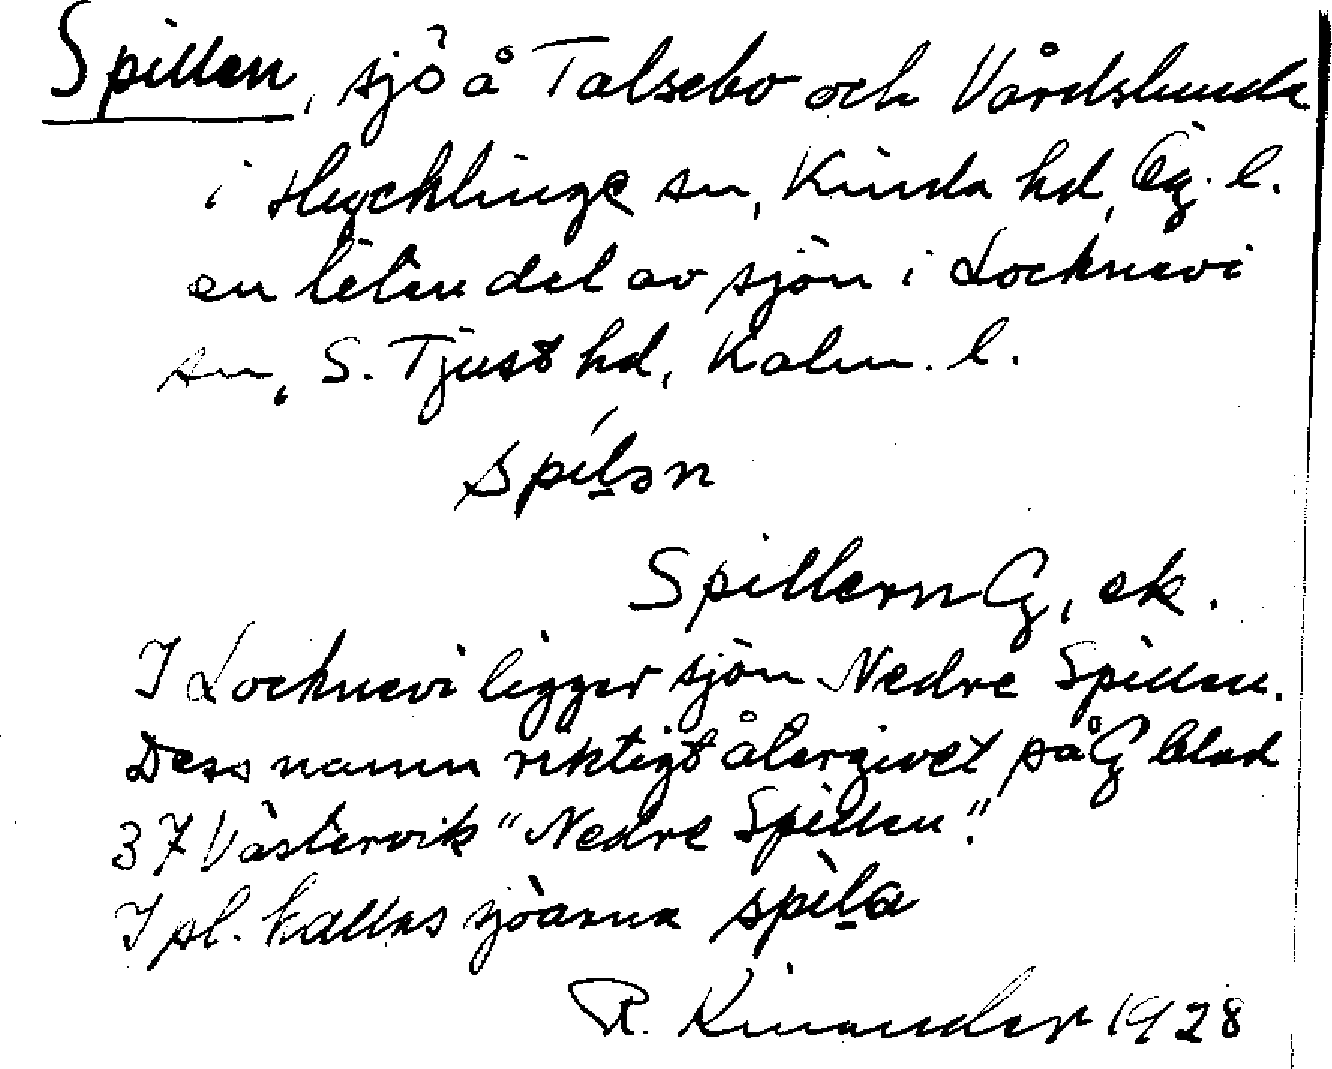 Spillen, sjö å Talsebo och Vårdslunda
i Hycklinge sn, Kinda hd, Ög. l.
en liten del av sjön i Locknevi
sn, S. Tjust hd, Kalm. l.
spilən
Spillern G, ek.
I Locknevi ligger sjön Nedre Spillen.
Dess namn riktigt återgivet på G blad
37 Västervik "Nedre Spillen".
I pl. kallas sjöarna spila
R. Kinander 1928